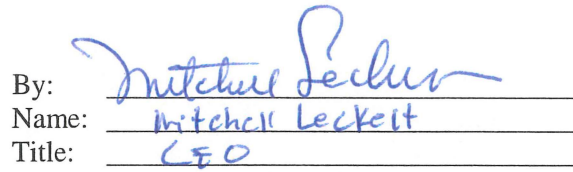 By: Mitchell Leckelt
Name: Mitchell Leckelt
Title: CEO